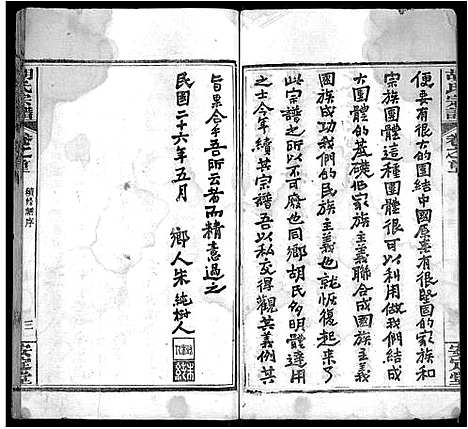 胡氏宗譜
卷之首
安定堂
便要有很大的團結中國原來有很堅固的家族和
宗族團體這種團體很可以利用做我們結成
大團體的基礎化家族主義聯合成國族主義
國族成功我們的民族主義也就恢復起來了
此宗譜之所以不可廢也同鄉胡氏多明體達用
之士今年續其宗譜吾以私交得觀其義例其
旨果合乎吾所云者而精意過之
民國二十六年五月
鄉人朱純樹人
胡氏宗譜
卷之首
三
安定堂